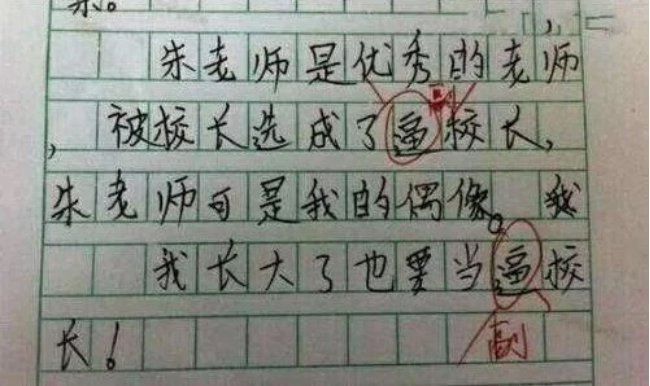 朱老师是优秀的老师
，被校长选成了逼校长，
朱老师可是我的偶像。我
我长大了也要当逼校
副
长！